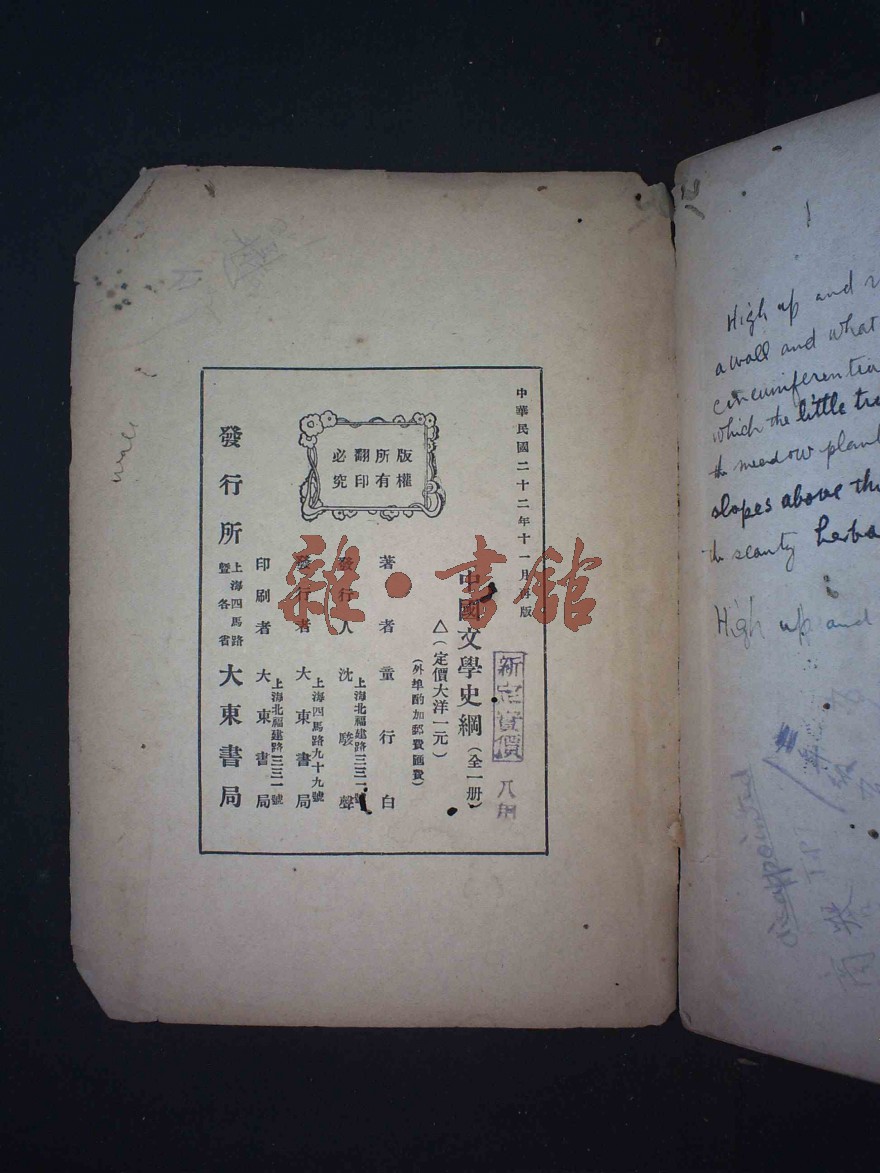 中華民國二十二年十一月再版
中國文學史綱（全一册）
△（定價大洋一元）
（外埠酌加郵費匯費）
著者 童行白
發行人 沈駿聲
上海北福建路三三一號
發行者 大東書局
上海四馬路九十九號
印刷者 大東書局
上海北福建路三三一號
發行所 上海四馬路暨各省 大東書局
版權
所有
翻印
必究
新定實價
八
雜·書館
wall
High up and
a wall and what
circumferentia
which the little tre
the meadow plant
slopes above the
the scanty herba
High up and
disappointed